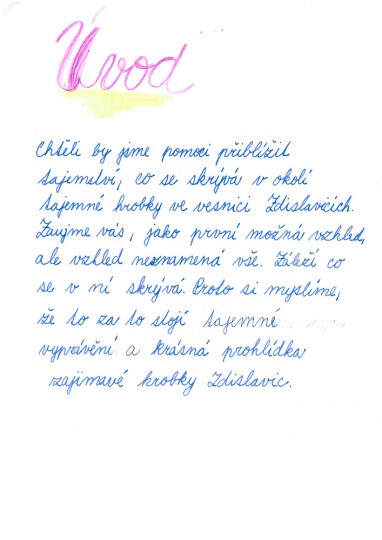 Úvod
Chtěli by jsme pomoci přiblížit
tajemství, co se skrývá v okolí
tajemné hrobky ve vesnici Zdislavicích.
Zaujme vás, jako první možná vzhled,
ale vzhled neznamená vše. Záleží co
se v ní skrývá. Proto si myslíme,
že to za to stojí tajemné
vyprávění a krásná prohlídka
zajimavé hrobky Zdislavic.